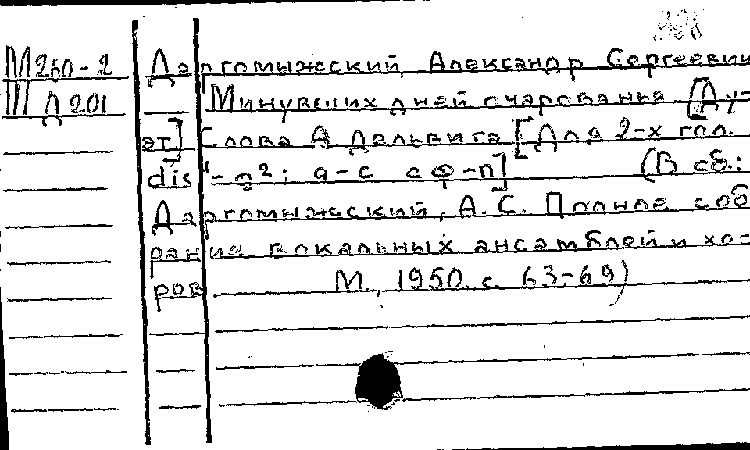 М260-2 Даргомыжский, Александр Сергеевич
Ш Д 201 Минувших дней очарованья [Ду-
эт] Слова А Дельвига [Для 2-х гол.
dis¹- a²; a-c с ф-п] (В сб.:
Даргомыжский, А. С. Полное соб
рание вокальных ансамблей и хо-
ров. М., 1950. с. 63-69)